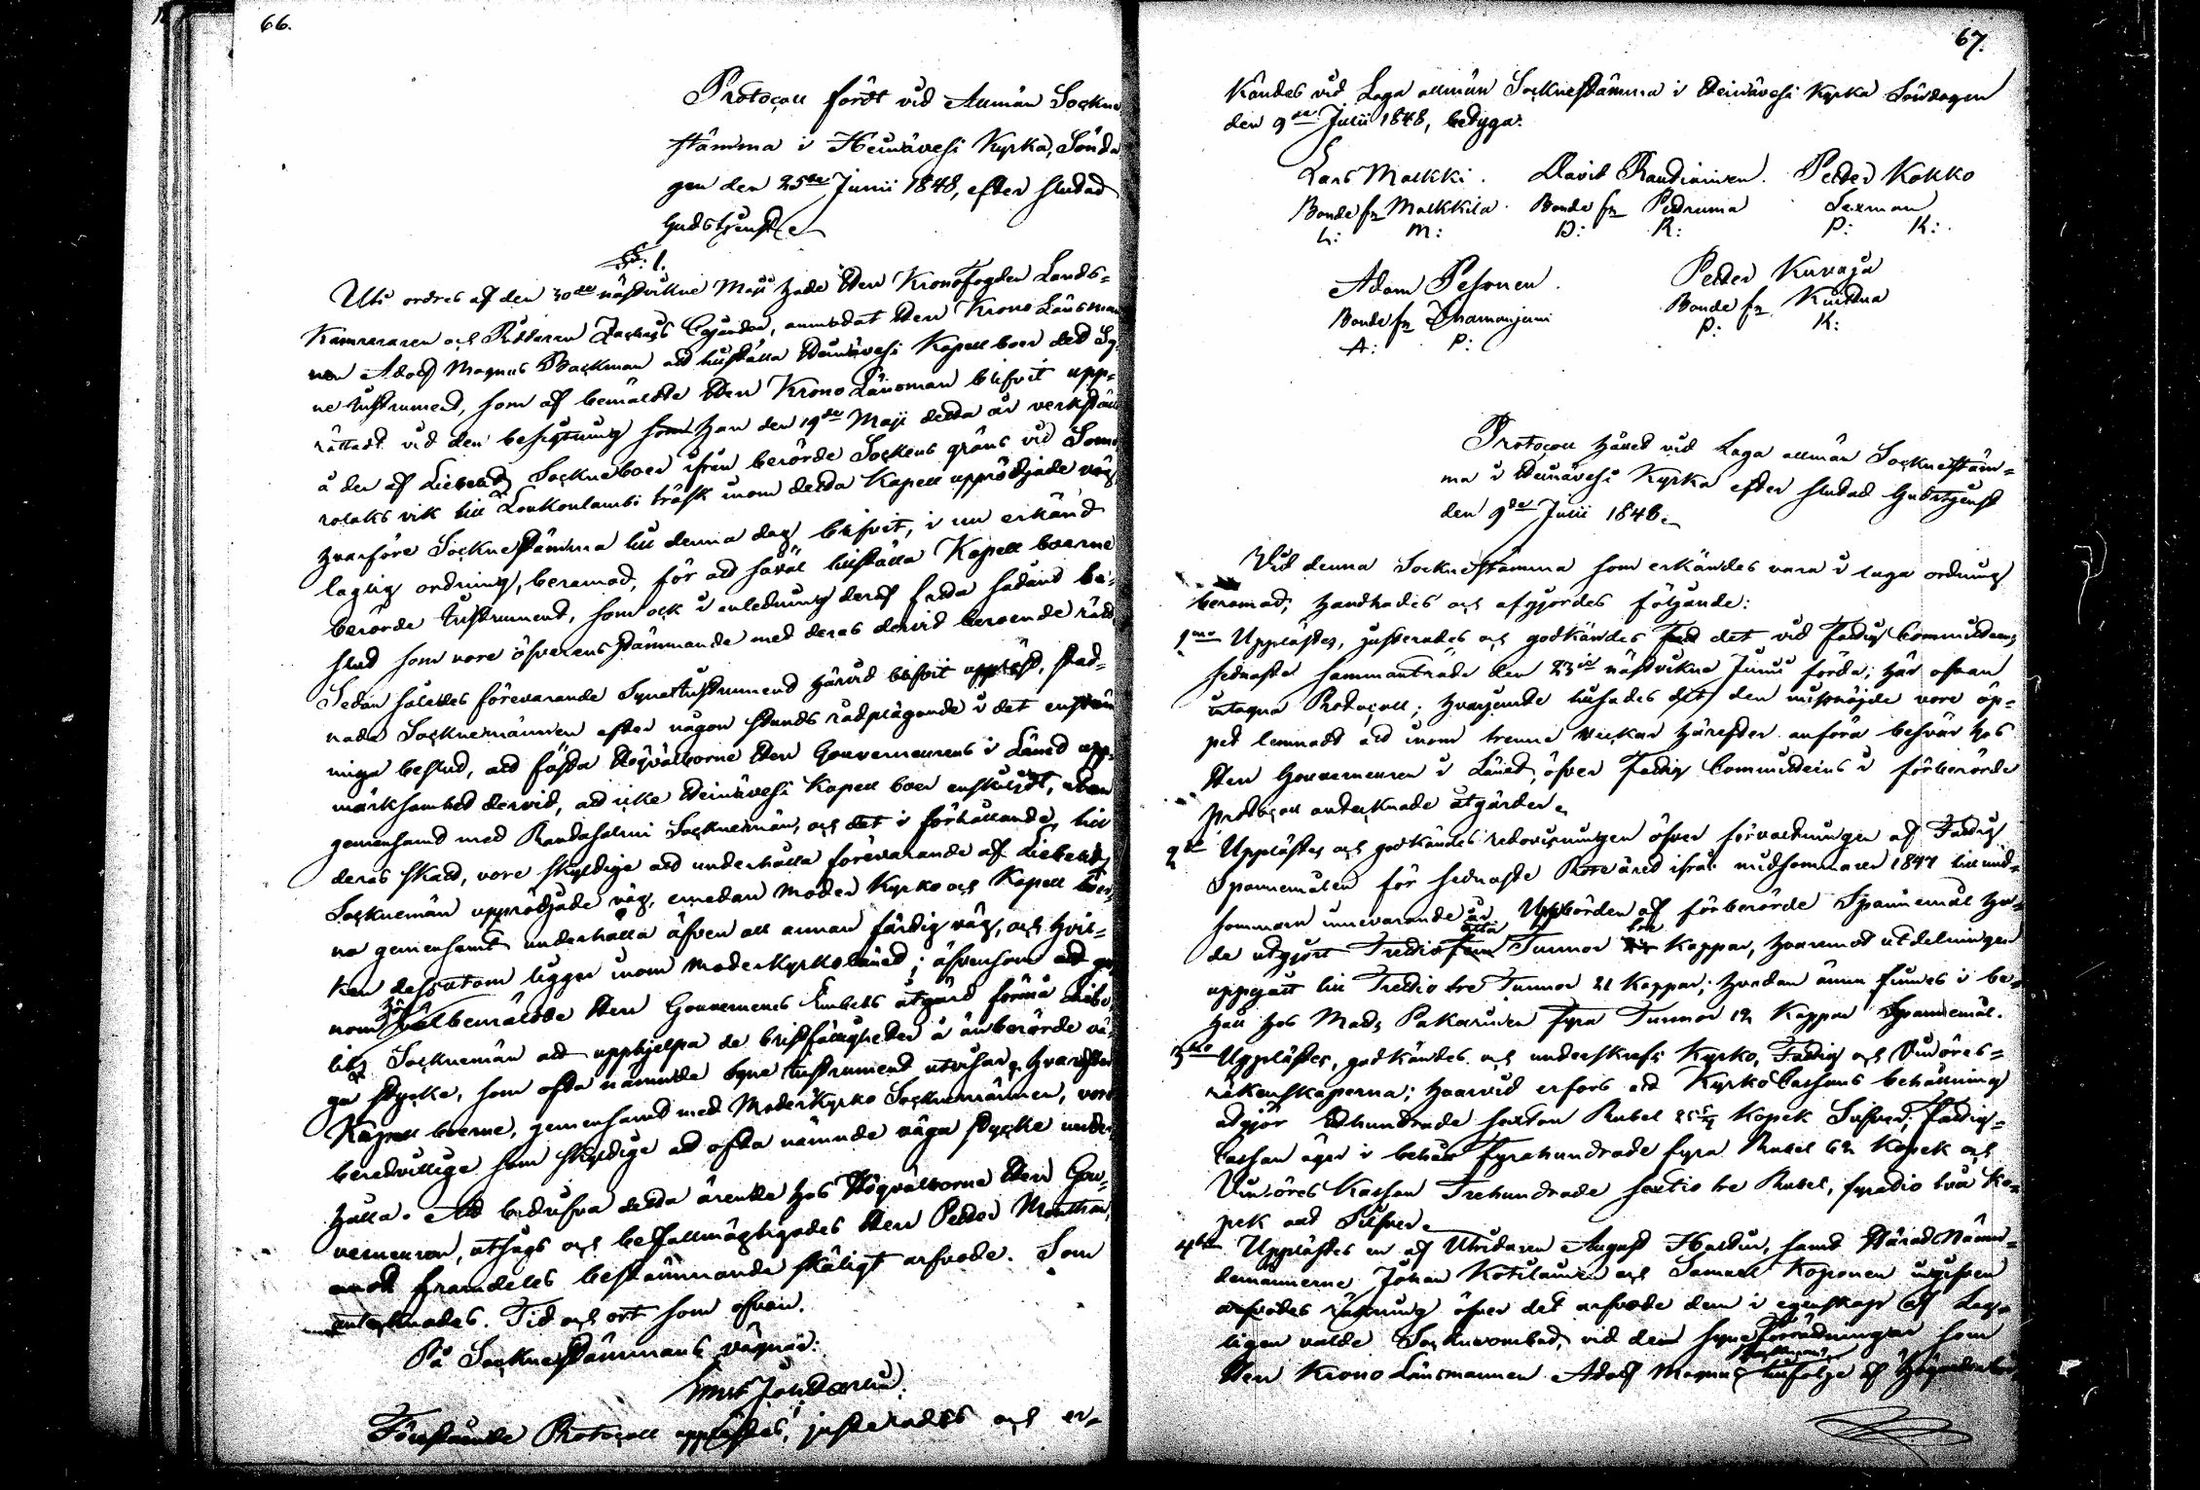 66.
Protocoll fördt vid Allmän Sockne
stämma i Heinävesi Kyrka, Sönda
gen den 25de Junii 1848, efter slutad
Gudstjenst
§: 1.
Uti ordres af den 30de nästvikne Maji hade Herr Kronofogden Lands-
Kamreraren och Riddaren Zachris Cygnæus, anmodat Herr Krono Länsman
nen Adolf Magnus Backman att tillställa Heinävesi Kapellboer det Sy-
ne Instrument, som af bemälte Herr Krono Länsman blifvit upp-
rättadt vid den besigtning som han den 19de Maji detta år verkställt
å den af Libelitz Sockneboer ifrån berörde Sockens gräns vid Som
rolaks vik till Loukonlambi träsk inom detta Kapell upprödjade väg
hvarföre Socknestämma till denna dag blifvit, i nu erkänd
laglig ordning, beramad, för att såväl tillställa Kapellboerne
berörde Instrument, som ock i anledning deraf fatta sådant be-
slut som vore öfverensstämmande med deras dervid beroende rätt
Sedan således förevarande Syne Instrument härvid blifvit uppläst, stad-
nade Socknemännen efter någon stunds rådplägande i det enstäm
miga beslut, att fästa Högvälborne Herr Gouverneurens i Länet upp-
märksamhet dervid, att icke Heinävesi Kapellboer enskildt, utan
gemensamt med Randasalmi Socknemän, och det i förhållande till
deras skatt, vore skyldige att underhålla förevarande af Libelitz
Socknemän upprödjade väg, emedan Moder Kyrko och Kapell boer-
na gemensamt underhålla äfven all annan färdig väg, och hvil-
ken dessutom ligger inom moderkyrkolänet; äfvensom att ge
nom Högvälbemälde Herr Gouverneurs Embets åtgärd förmå Libe
litz Socknemän att upphjelpa de bristfälligheter å omberörde vä-
ga stycke, som ofta nämnde Syne Instrument utvisar, hvarefter
Kapell boerne, gemensamt med Moderkyrko Socknemännen, vore
beredvillige som skyldige att ofta nämnde väga stycke under
hålla. Att bedrifva detta ärende hos Högvälborne Herr Gou-
verneuren, utsågs och befullmägtigades Herr Petter
emot framdeles bestämmande skäligt arfvode. Som
antecknades. Tid och ort som ofvan.
På Socknestämmans vägnar:
Förestående Protocoll upplästes, justerades och er-
67.
kändes vid Laga allmän Socknestämma i Heinävesi Kyrka Söndagen
den 9de Julii 1848, betyga:
Lars Malkki. David Raudiainen. Petter Kokko
Bonde fr Malkkila Bonde fr Pedruma Sexman
L: M: D: R: P: K:
Adam Pesonen. Petter Kuvaja
Bonde fr Ihamanjemi Bonde fr
A: P: P: K:
Protocoll hållet vid Laga allmän Socknestäm-
ma i Heinävesi Kyrka efter slutad Gudstjenst
den 9de Julii 1848.
Vid denna Socknestämma som erkändes vara i laga ordning
beramad, handlades och afgjordes följande:
1mo Upplästes, justerades och godkändes det vid Fattig Committeens
sednaste sammanträde den 23ie nästvikne Junii förda, här ofvan
intagna Protocoll; hvarjemte tillsades det den missnöjde vore öp-
pet lemnadt att inom trenne veckor härefter anföra besvär hos
Herr Gouverneuren i Länet, öfver Fattig Committeens i förberörde
protocoll antecknade åtgärder.
2do Upplästes och godkändes redovisningen öfver förvaltningen af Fattig
Spannemålen för sednaste Roteåret ifrån midsommaren 1847 till mid-
sommarn innevarande år. Uppbörden af förberörde Spannemål ha-
de utgjort Trettio åtta Tunnor tre Kappar, hvaremot utdelningen
uppgått till Trettio tre Tunnor 21 Kappar; hvadan ännu finnes i be-
håll hos Mads Pakarinen fyra Tunnor 12 Kappar Spannemål.
3tio Upplästes, godkändes och underskrefs Kyrko, Fattig och Vinöres-
räkenskaperna; hvarvid erfors att Kyrko Cassans behållning
utgör Etthundrade sexton Rubel 25 5/7 Kopek Silfver; Fattig-
Cassan äger i behåll Fyrahundrade fyra Rubel 62 Kopek och
Vinöres Kassan Trehundrade sextio tre Rubel, fyratio två Ko-
pek allt Silfver.
4to Upplästes en af Utridaren August Hardin, samt Härads Nämn-
demännerne Johan Kotilainen och Samuel Koponen ingifven
arfvodes räkning öfver det arfvode dem i egenskap af Lag-
ligen valde Sockneombud, vid den syneförrättningar som
Herr Krono Länsmannen Adolf Magnus Backman tillfölje af